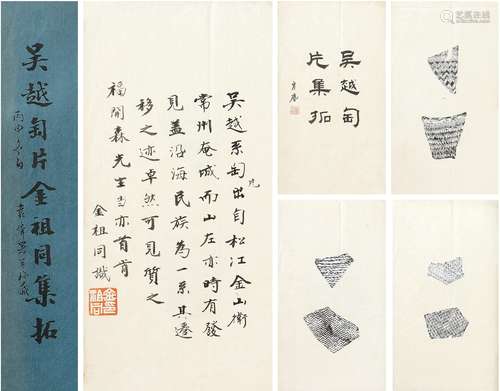 吳越匋片金祖同集拓
吳越系匋出自松江金山衛
常州奄城而山左亦時有發
見蓋沿海民族為一系其遷
移之迹卓然可見質之
福開森先生當亦首肯
金祖同識
吳越匋
片集拓